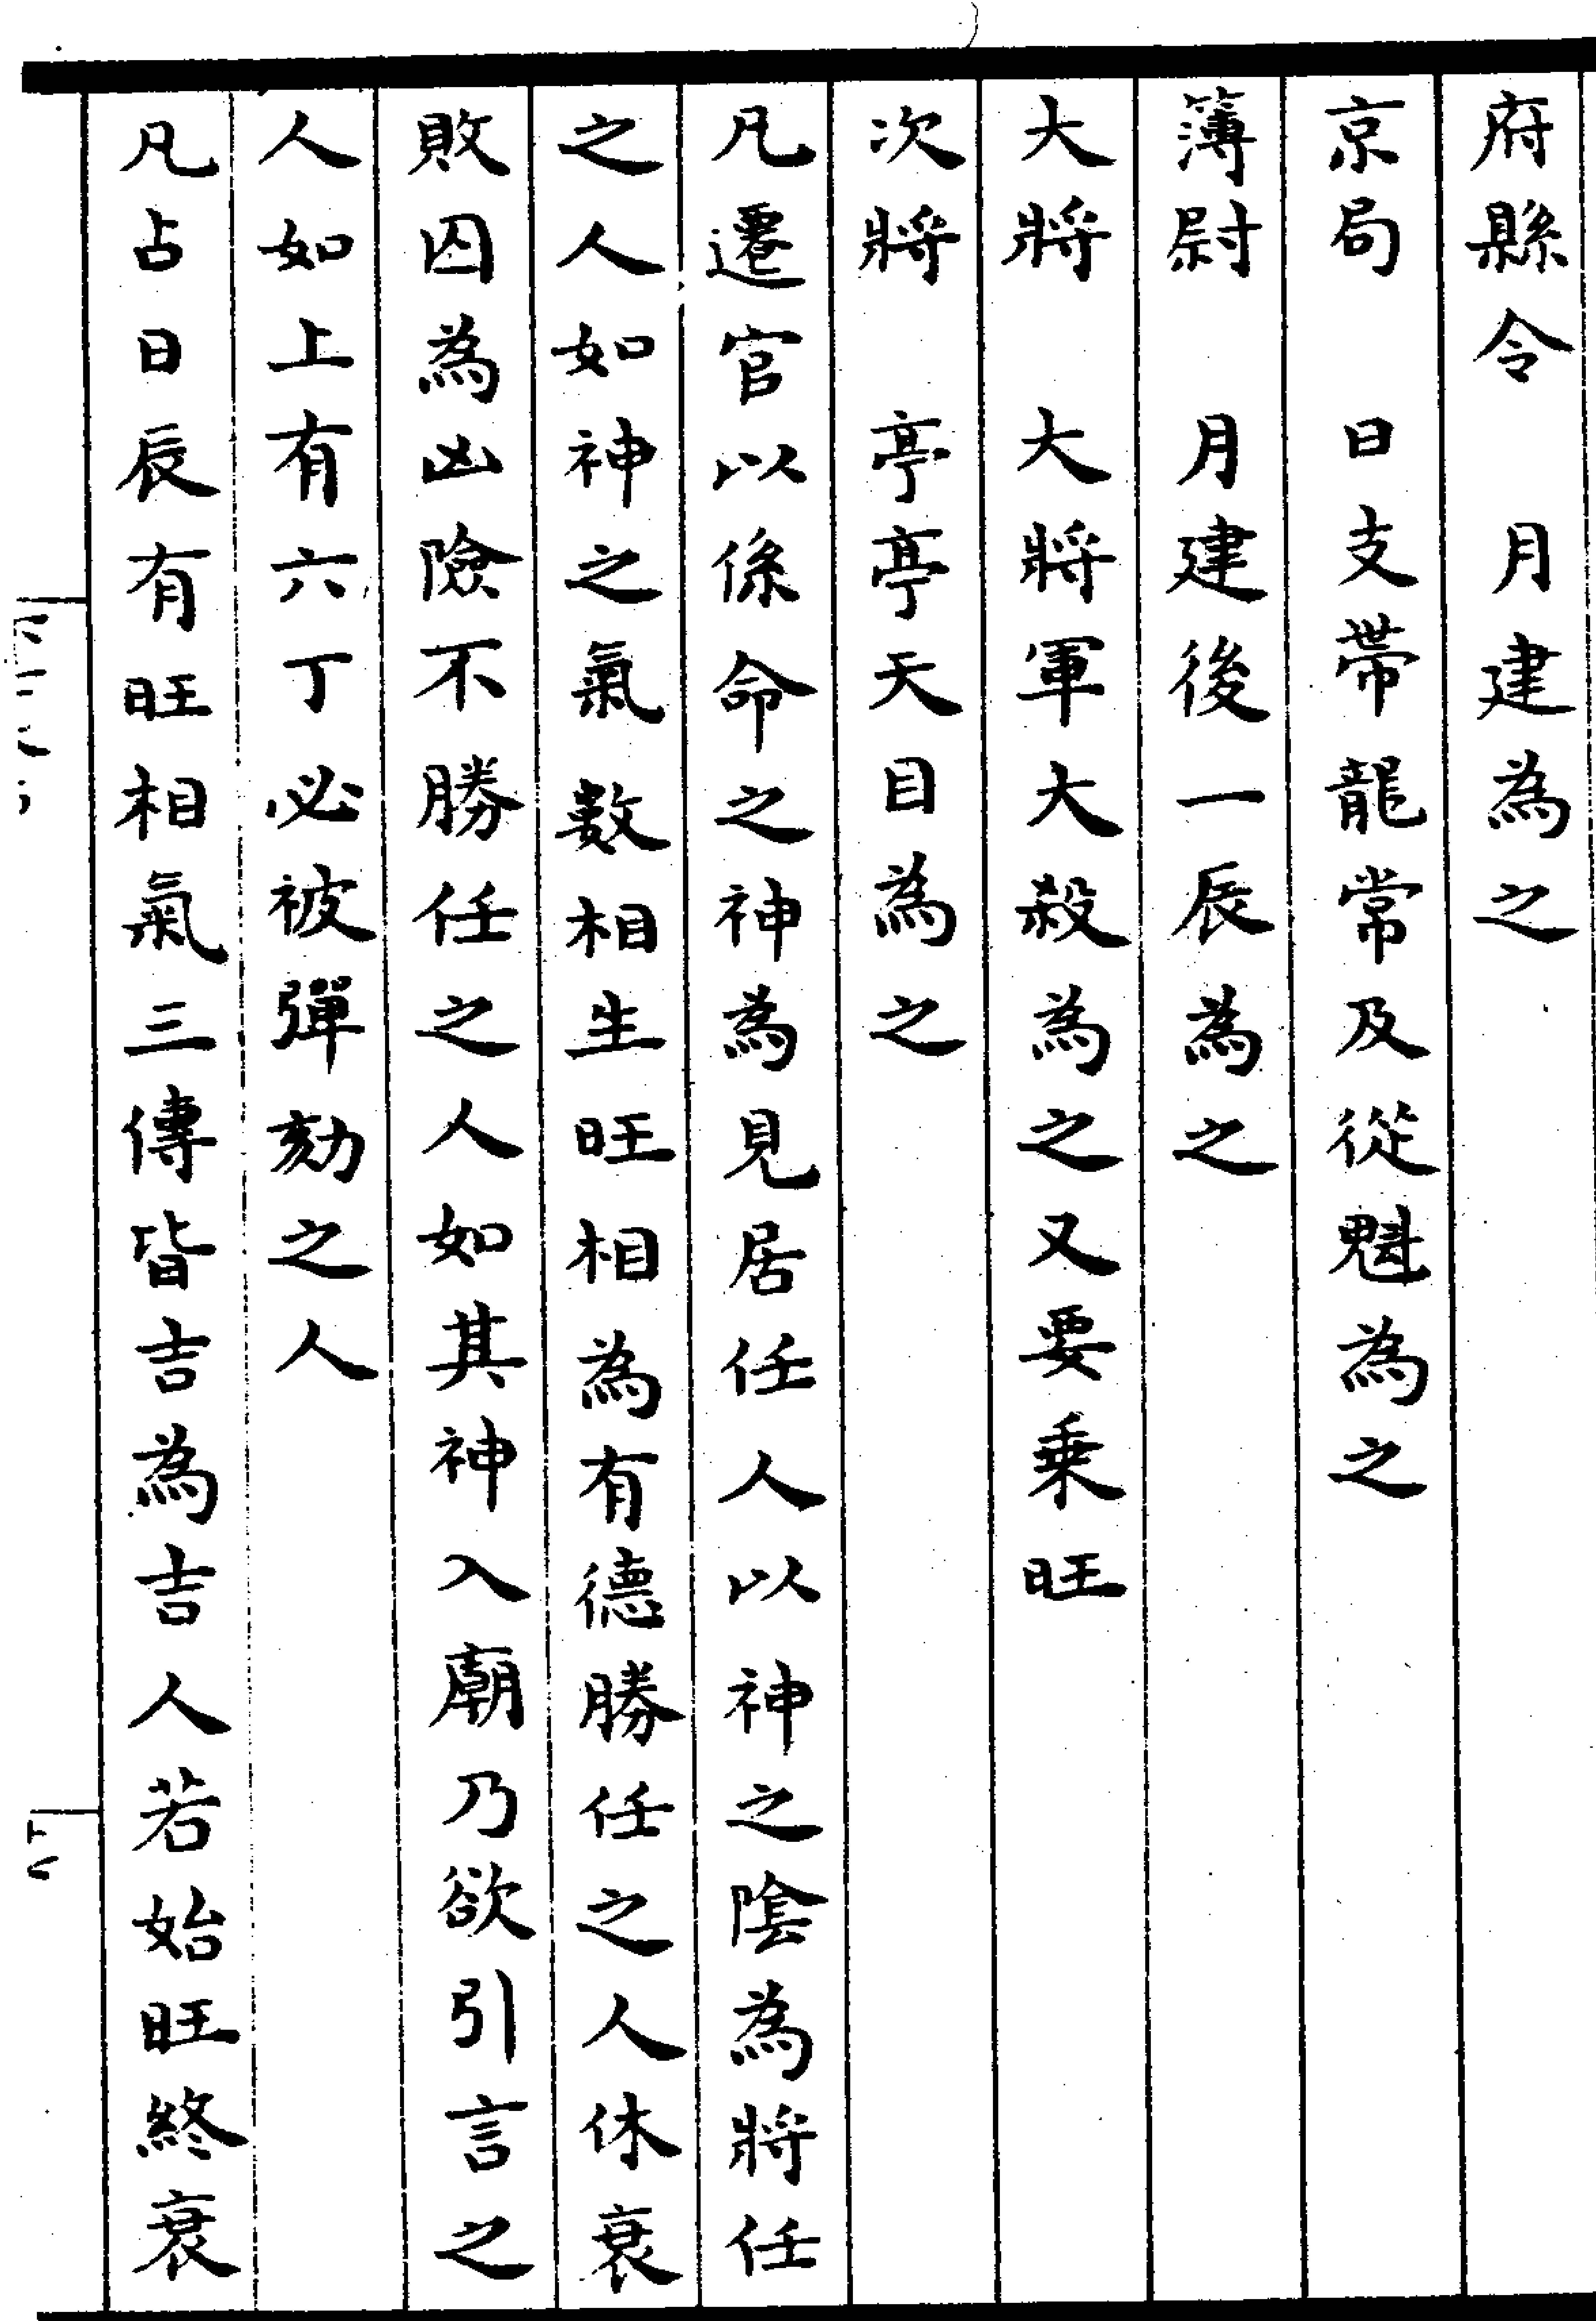 府縣令　月建為之
京局　日支帶龍常及從魁為之
簿尉　月建後一辰為之
大將　大將軍大殺為之又要乗旺
次將　亭亭天目為之
凡遷官以係命之神為見居任人以神之陰為將任
之人如神之氣數相生旺相為有德勝任之人休衰
敗囚為凶險不勝任之人如其神入廟乃欲引言之
人如上有六丁必被彈劾之人
凡占日辰有旺相氣三傳皆吉為吉人若始旺終衰